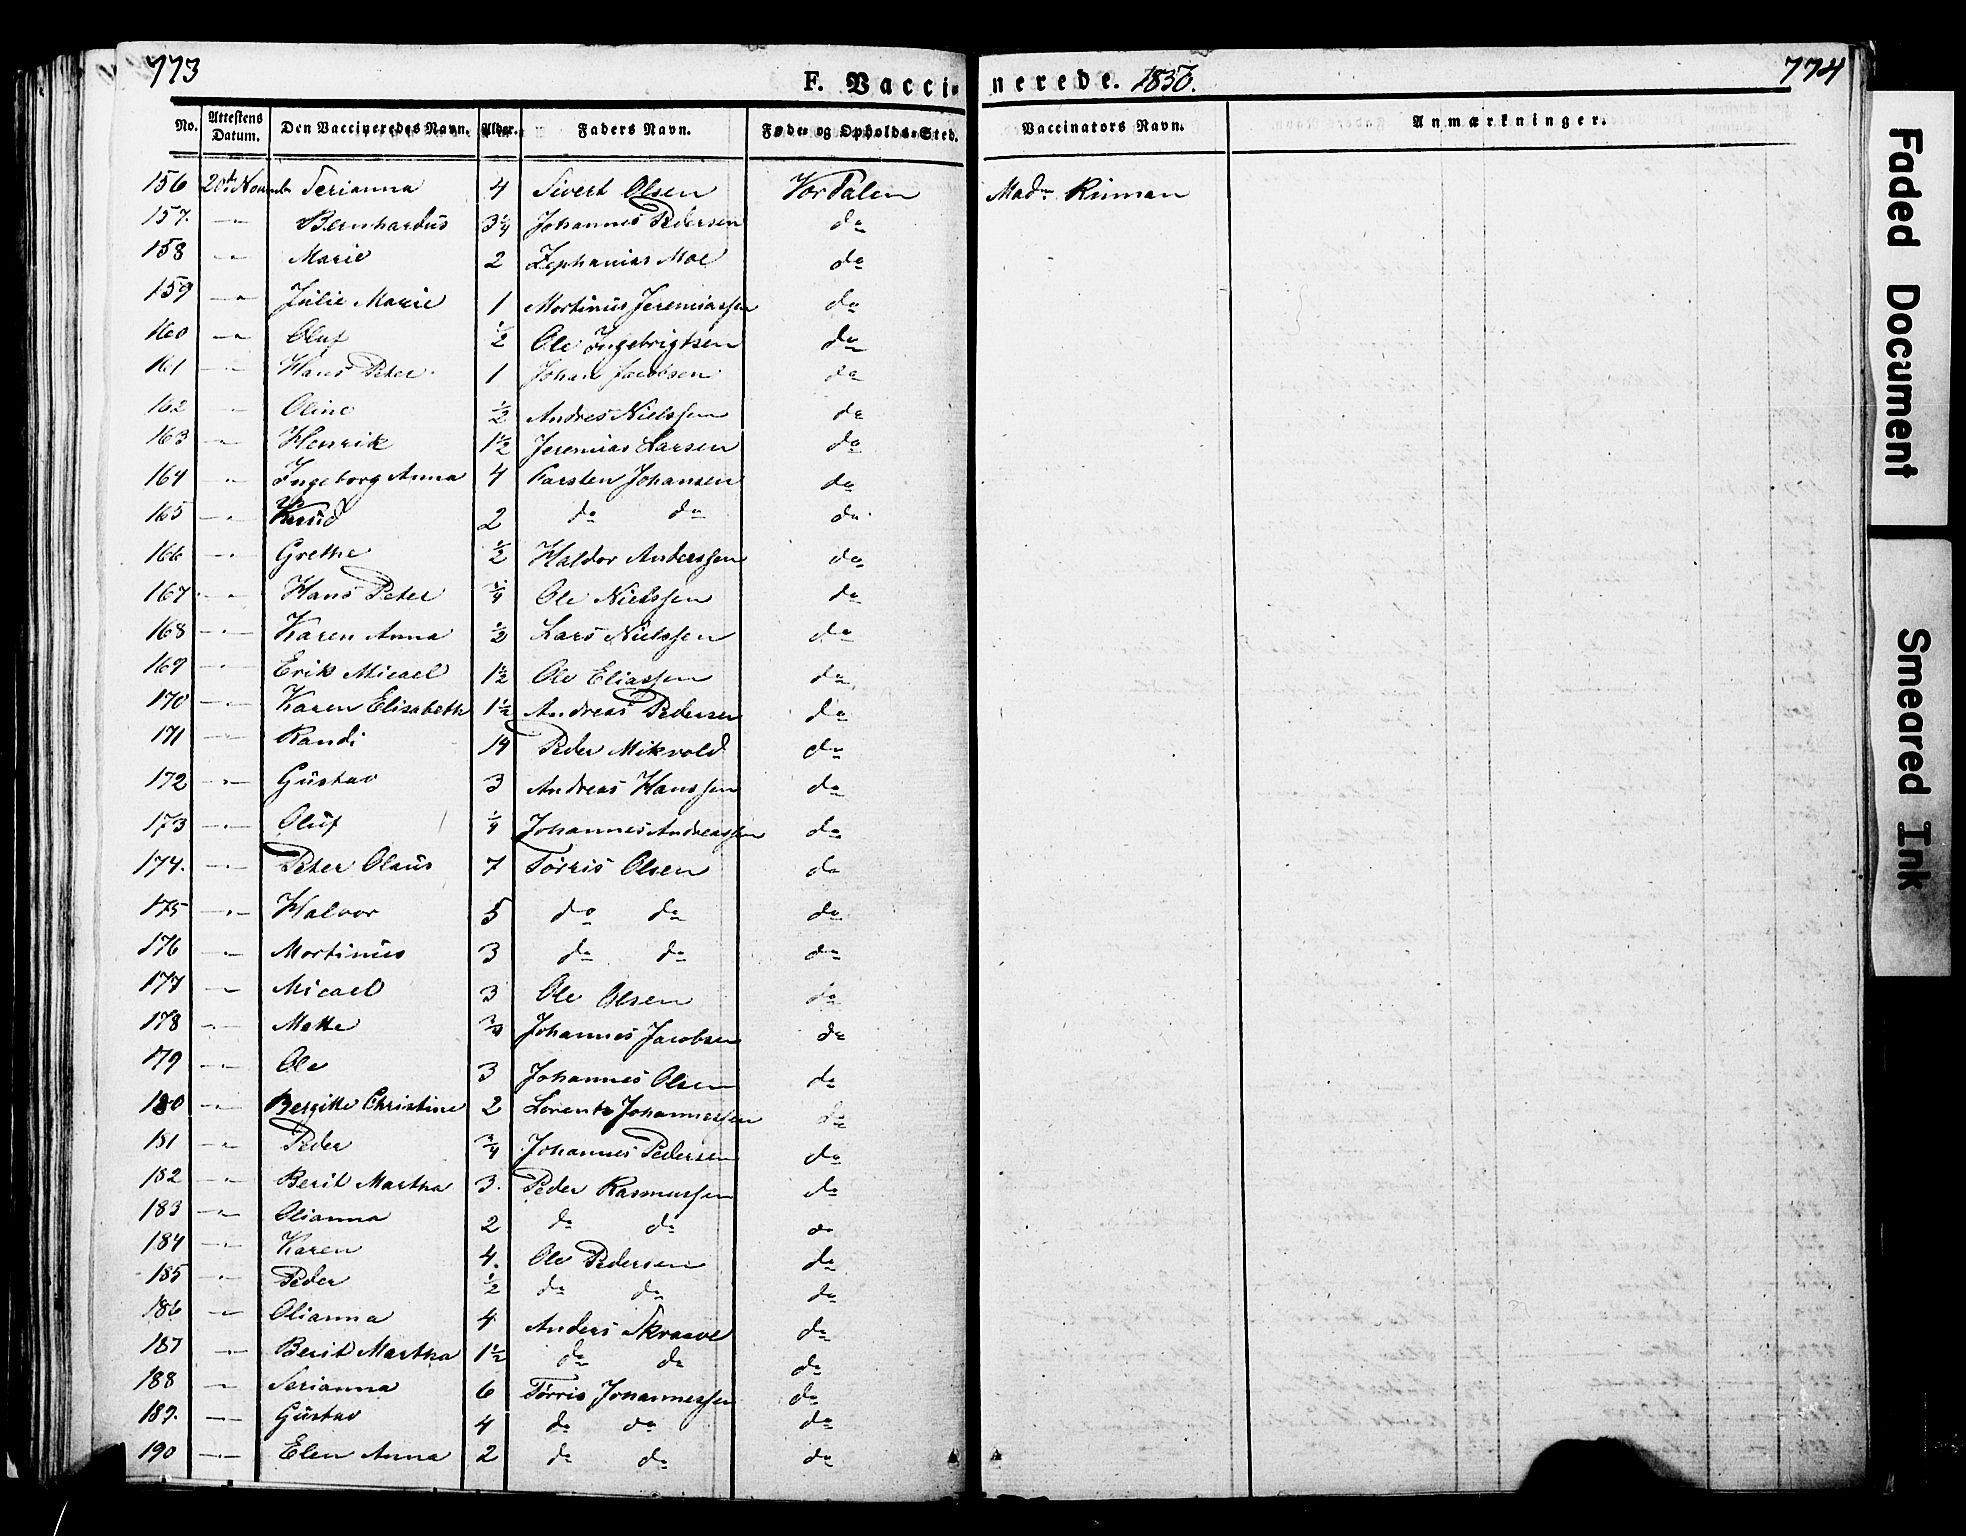 773
F. Vaccinerede. 1836.
774
No. Attestens Datum. Den Vaccineredes Navn. Alder. Faders Navn. Føde- og Opholds-Sted. Vaccinators Navn. Anmærkninger.
156 20de Novembr Serianna 4 Sivert Olsen Vor Salen Madm Rinman
157. -"- Bernhardus 3 1/4 Johannes Pedersen do
158 -"- Marie 2 Zephanias Moe do
159 -"- Julie Marie 1 Mortinus Jeremiassen do
160 -"- Oluf 1/2 Ole Ingebrigtsen do
161 -"- Hans Peter 1 Johan Jacobsen do
162 -"- Oline 1/2 Andres Nielssen do
163 -"- Henrik 1 1/2 Jeremias Larsen do
164 -"- Ingeborg Anna 4 Karsten Johansen do
165 -"- 2 do do do
166 -"- Grethe 1/2 Haldor Anderssen do
167 -"- Hans Peter 1/4 Ole Nielssen do
168 -"- Karen Anna 1/2 Lars Nielssen do
169 -"- Erik Micael 1 1/2 Ole Eliassen do
170 -"- Karen Elisabeth 1 1/2 Andreas Pedersen do
171 -"- Randi 14 Peder Mikvold do
172 -"- Gustav 3 Andreas Hanssen do
173 -"- Oluf 1/4 Johannes Andreassen do
174. -"- Peter Olaus 7 Tørris Olsen do
175 -"- Halvor 5 do do do
176 -"- Mortinus 3 do do do
177 -"- Micael 3 Ole Olsen do
178 -"- Mette 3/4 Johannes Jacobsen do
179 -"- Ole 3 Johannes Olsen do
180 -"- Bergitte Christine 2 Lorents Johannessen do
181 -"- Peder 3/4 Johannes Pedersen do
182 -"- Berit Martha 3. Peder Rasmussen do
183 -"- Olianna 2 do do do
184 -"- Karen 4. Ole Pedersen do
185 -"- Peder 1/2 do do do
186 -"- Olianna 4 Anders Skraave do
187 -"- Berit Martha 1 1/2 do do do
188 -"- Serianna 6 Tørris Johannessen do
189. -"- Gustav 4 do do do
190 -"- Elen Anna 2 do do do
Faded Document
Smeared Ink